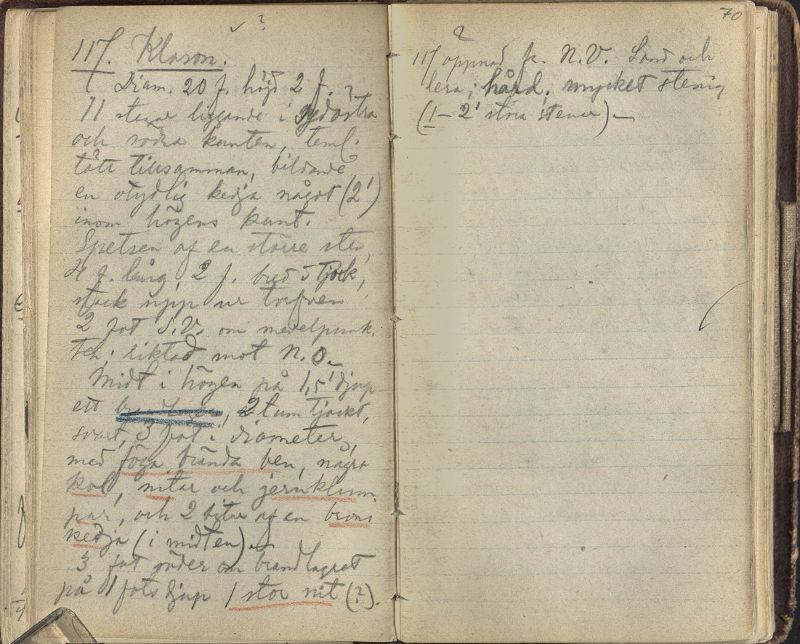 117. Klason.
Diam. 20 f. höjd 2 f.
11 stenar liggande i sydöstra
och södra kanten, teml.
tätt tillsamman, bildande
en otydlig kedja något (2')
inom högens kant.
Spetsen af en större sten,
4 f. lång, 2 f. bred o tjock,
stack upp ur torfven
2 fot S.V. om medelpunk-
ten; riktad mot N.O.
Midt i högen på 1,5' djup
ett, 2 tum tjockt,
svart, 3 fot i diameter,
med föga brända ben, några
kol, nitar och jernklum-
par, och 2 bitar af en brons
kedja (i midten).
3 fot söder om brandlagret
på 1 fots djup 1 stor nit (?).
70
?
117 öppnad fr. N.V. Sand och
lera; hård, mycket stenig
(1–2' stora stenar).